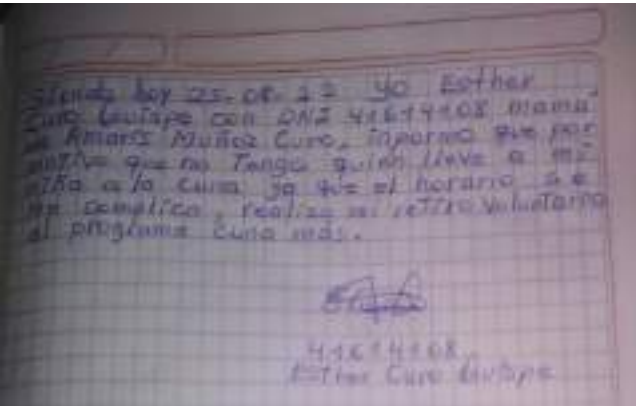 Siendo hoy 25-08-22 yo Esther
Curo Quispe con DNI 41614108 mamá
de Amaris Muñoz Curo, informo que por
motivo que no Tengo quien lleve a mi
niña a la cuna ya que el horario se
me complica, realizo mi retiro voluntario
al programa cuna más.
41614108
Esther Curo Quispe